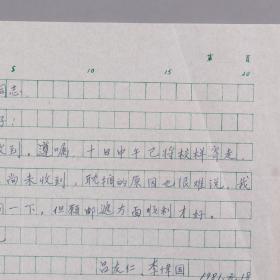 第 页
5 10 15 20
同志:
好!
收到,遵嘱 十日中午已将校样寄走,
尚未收到,耽搁的原因也很难说。我
问一下,但愿邮递方面顺利才好。
吕友仁 李伟国
1981.